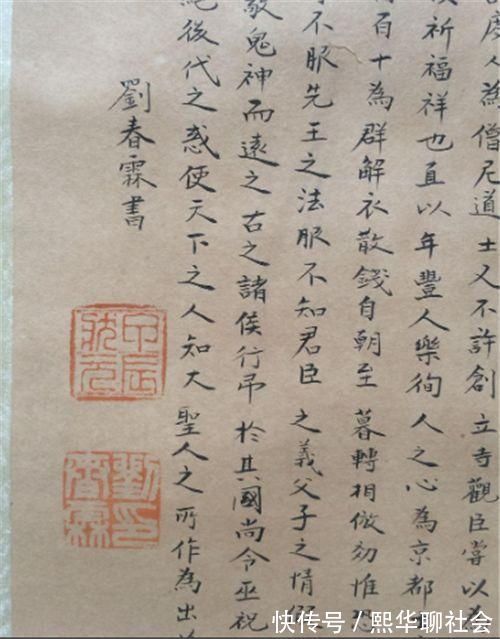 度人為僧尼道士又不許創立寺觀臣嘗以為
祈福祥也直以年豐人樂徇人之心為京都
百十為群解衣散錢自朝至暮轉相倣効惟恐
不服先王之法服不知君臣之義父子之情
敬鬼神而遠之古之諸侯行弔於其國尚令巫祝
後代之惑使天下之人知大聖人之所作為出
劉春霖書
甲辰狀元
劉印春霖
快传号 / 熙华聊社会